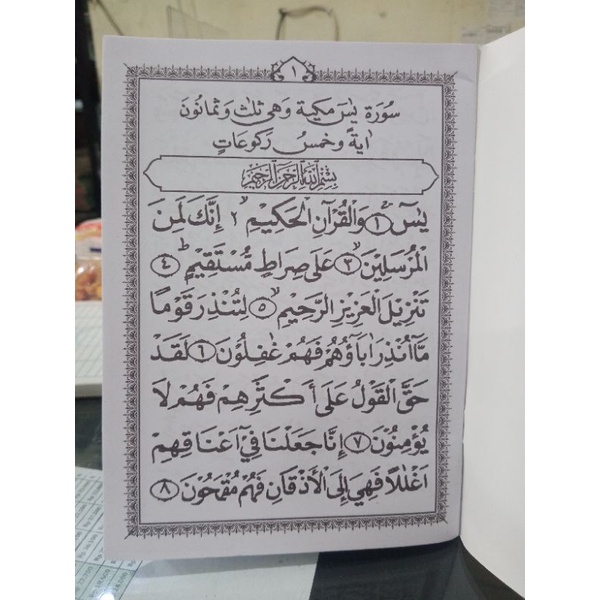 ١
سُورَةُ يٰسٓ مَكِّيَّة وَهِيَ ثَلٰثٌ وَثَمَانُونَ
اٰيَةً وَخَمْسُ رَكُوعَاتٍ
بِسْمِ اللهِ الرَّحْمٰنِ الرَّحِيْمِ
يٰسٓ ۙ ١ وَالْقُرْاٰنِ الْحَكِيْمِ ۙ ٢ اِنَّكَ لَمِنَ
الْمُرْسَلِيْنَ ۙ ٣ عَلٰى صِرَاطٍ مُّسْتَقِيْمٍ ۗ ٤
تَنْزِيْلَ الْعَزِيْزِ الرَّحِيْمِ ۙ ٥ لِتُنْذِرَ قَوْمًا
مَّآ اُنْذِرَ اٰبَاۤؤُهُمْ فَهُمْ غٰفِلُوْنَ ٦ لَقَدْ
حَقَّ الْقَوْلُ عَلٰٓى اَكْثَرِهِمْ فَهُمْ لَا
يُؤْمِنُوْنَ ٧ اِنَّا جَعَلْنَا فِيْٓ اَعْنَاقِهِمْ
اَغْلٰلًا فَهِيَ اِلَى الْاَذْقَانِ فَهُمْ مُّقْمَحُوْنَ ٨